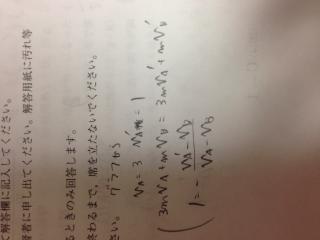 て解答欄に記入してください。
督者に申し出てください。解答用紙に汚れ等
るときのみ回答します。
終わるまで，席を立たないでください。
さい。
グラフから
VA = 3 VA' = 1
3mVA + mVB = 3mVA' + mVB'
1 = - VA' - VB' / VA - VB